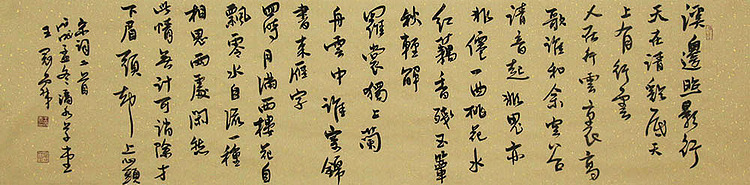 溪邊照影行
天在清谿底天
上有行雲
人在行雲裏高
歌誰和余空谷
清音起非鬼亦
非僊一曲桃花水
紅藕香殘玉簟
秋輕解
羅裳獨上蘭
舟雲中誰寄錦
書來雁字
回時月滿西樓花自
飄零水自流一種
相思兩處閑愁
此情無計可消除才
下眉頭却上心頭
宋詞二首
孟冬
王